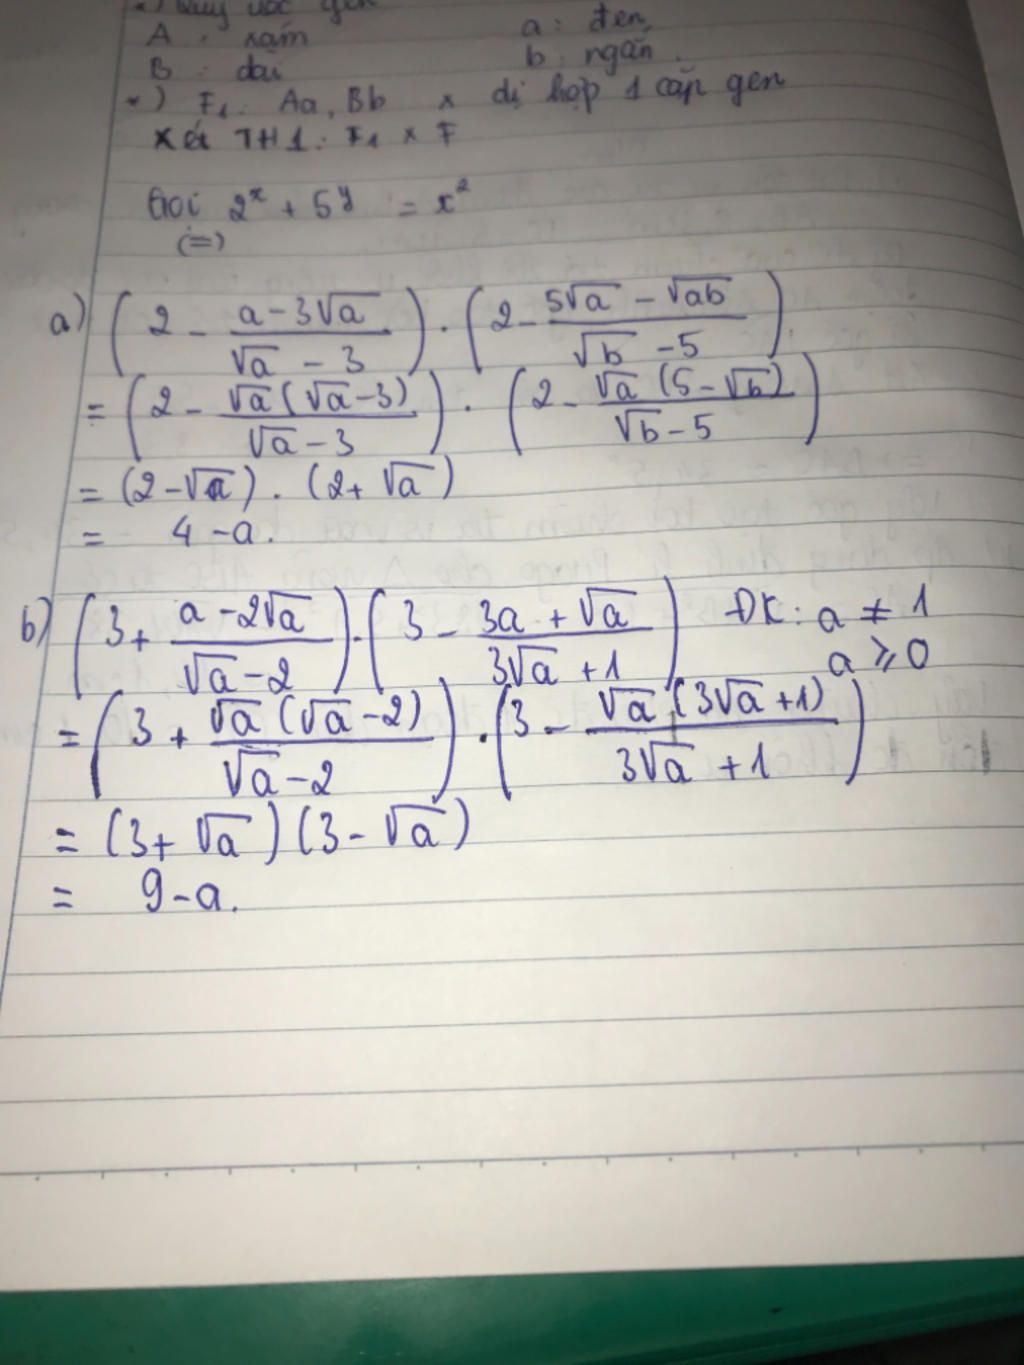 *) Quy ước gen
A : xám a : đen
B : dài b : ngắn.
*) F1: Aa, Bb x dị hợp 1 cặp gen
Xét TH1: F1 x F
Gọi 2^x + 5^y = x²
(=)
a) (2 - (a - 3√a)/(√a - 3)) . (2 - (5√a - √ab)/(√b - 5))
= (2 - √a(√a - 3)/(√a - 3)) . (2 - √a(5 - √b)/(√b - 5))
= (2 - √a) . (2 + √a)
= 4 - a.
b) (3 + (a - 2√a)/(√a - 2)) . (3 - (3a + √a)/(3√a + 1)) ĐK : a ≠ 1
a ⩾ 0
= (3 + √a(√a - 2)/(√a - 2)) . (3 - √a(3√a + 1)/(3√a + 1))
= (3 + √a)(3 - √a)
= 9 - a.